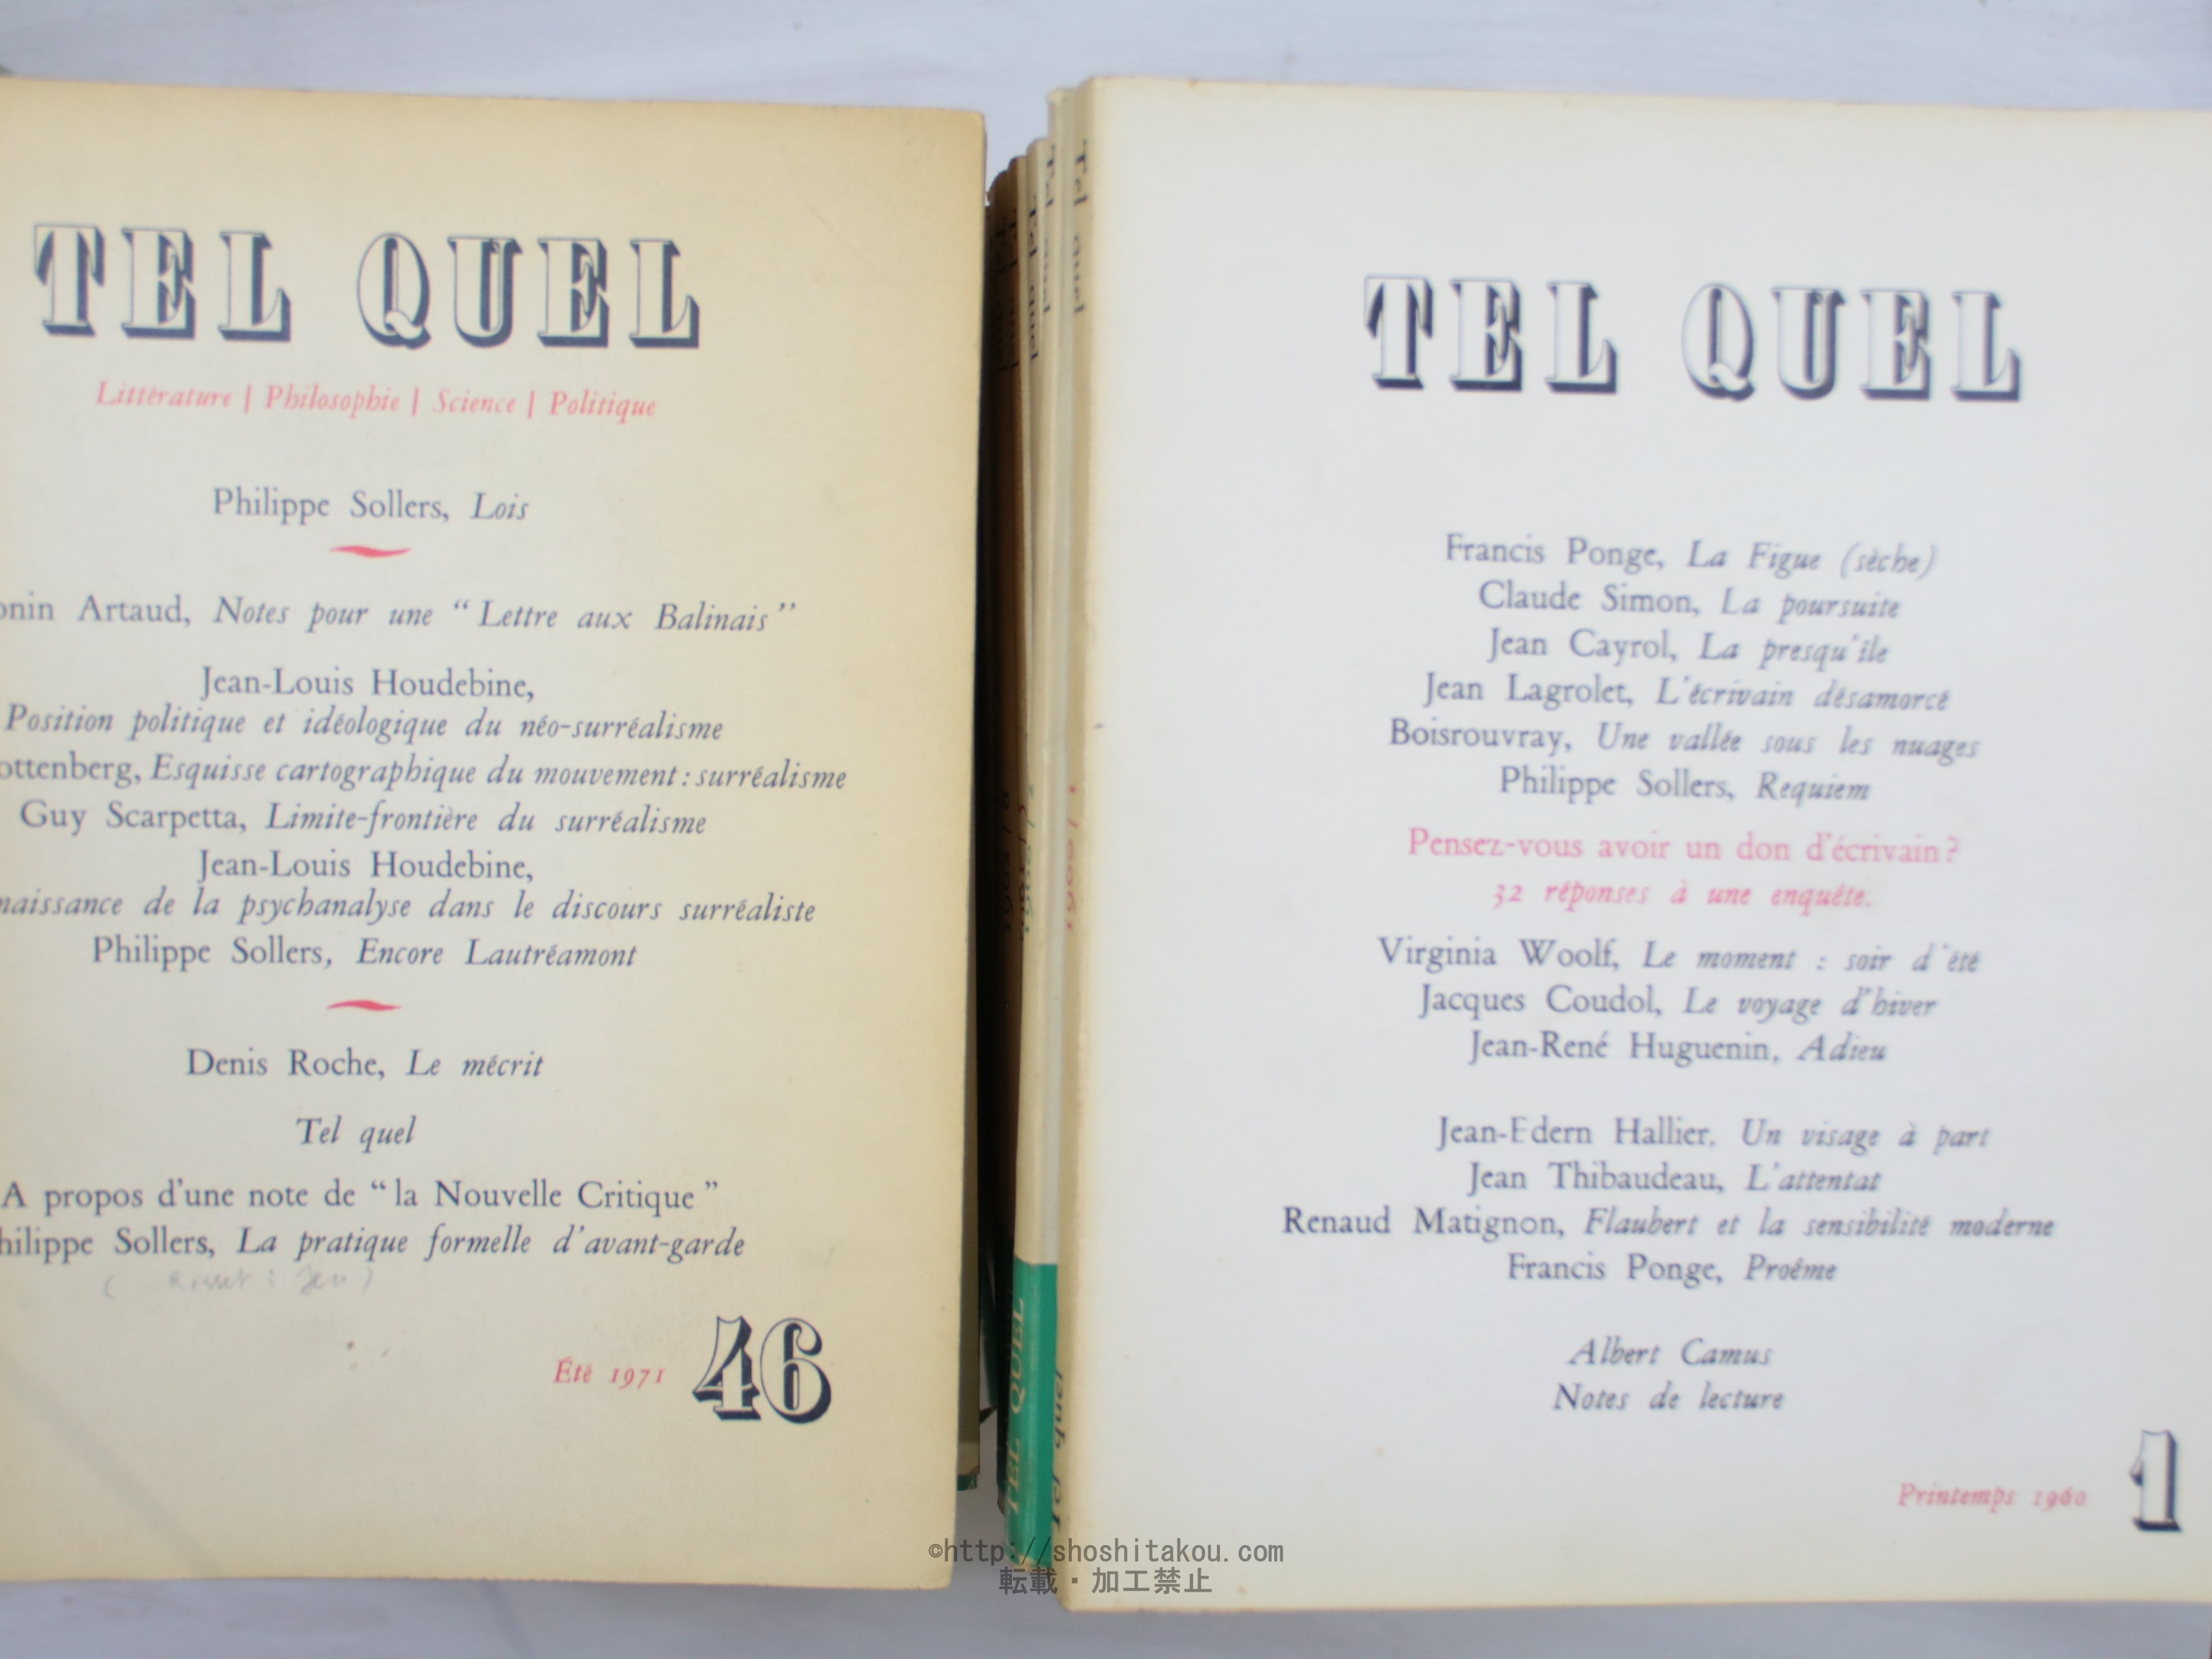 TEL QUEL
Littérature | Philosophie | Science | Politique
Philippe Sollers, Lois
Artaud, Notes pour une “Lettre aux Balinais”
Jean-Louis Houdebine,
Position politique et idéologique du néo-surréalisme
Esquisse cartographique du mouvement : surréalisme
Guy Scarpetta, Limite-frontière du surréalisme
Jean-Louis Houdebine,
de la psychanalyse dans le discours surréaliste
Philippe Sollers, Encore Lautréamont
Denis Roche, Le mécrit
Tel quel
A propos d'une note de “la Nouvelle Critique”
hilippe Sollers, La pratique formelle d'avant-garde
Été 1971 46
Tel quel
TEL QUEL
Tel quel
TEL QUEL
Francis Ponge, La Figue (sèche)
Claude Simon, La poursuite
Jean Cayrol, La presqu'île
Jean Lagrolet, L'écrivain désamorcé
Boisrouvray, Une vallée sous les nuages
Philippe Sollers, Requiem
Pensez-vous avoir un don d'écrivain?
32 réponses à une enquête.
Virginia Woolf, Le moment : soir d'été
Jacques Coudol, Le voyage d'hiver
Jean-René Huguenin, Adieu
Jean-Edern Hallier, Un visage à part
Jean Thibaudeau, L'attentat
Renaud Matignon, Flaubert et la sensibilité moderne
Francis Ponge, Proême
Albert Camus
Notes de lecture
Printemps 1960 1
©http://shoshitakou.com
転載・加工禁止